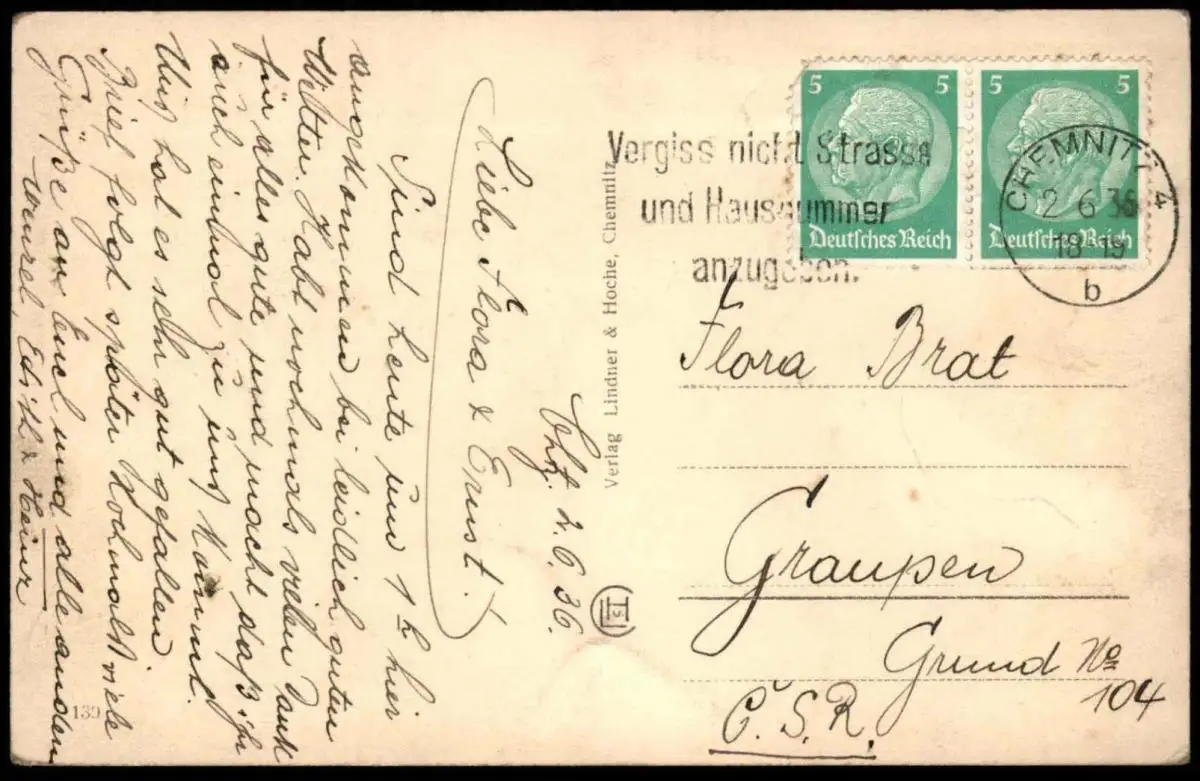 Chtz. 2.6.36.
Liebe Flora & Ernst!
Sind heute um 1 h hier
angekommen bei leidlich guten
Wetter. Habt nochmals vielen Dank
für alles gute und macht daß ihr
auch einmal zu uns kommt.
Uns hat es sehr gut gefallen
Brief folgt später Nochmals viele
Grüße an Euch und alle andern
Edith & Heinz
139
Verlag Lindner & Hoche, Chemnitz
5 5
5 5
Deutsches Reich
Deutsches Reich
Vergiss nicht Strasse
und Hausnummer
anzugeben.
CHEMNITZ 4
2 6 36
18-19
b
Flora Brat
Graupen
Grund No
104
Č.S.R.